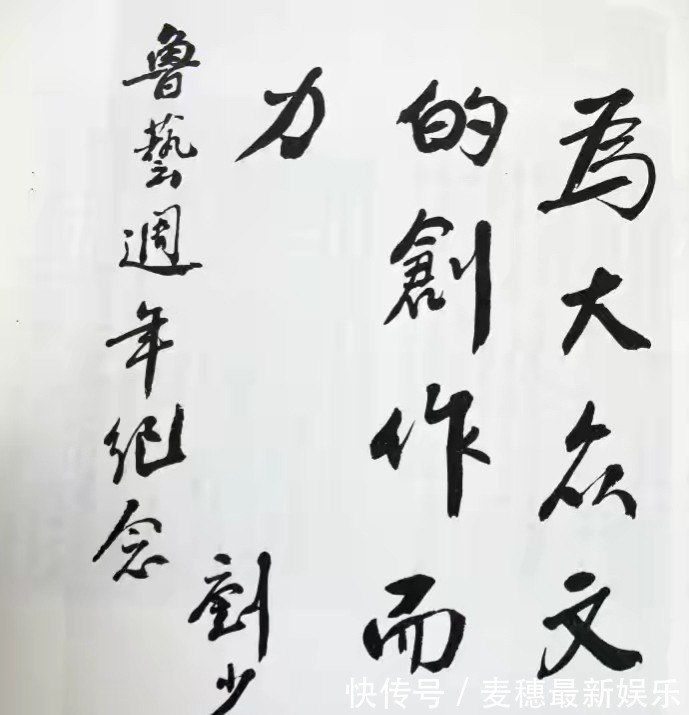 為大众文
的創作而
力
魯藝週年纪念
劉少
快传号/麦穗最新娱乐